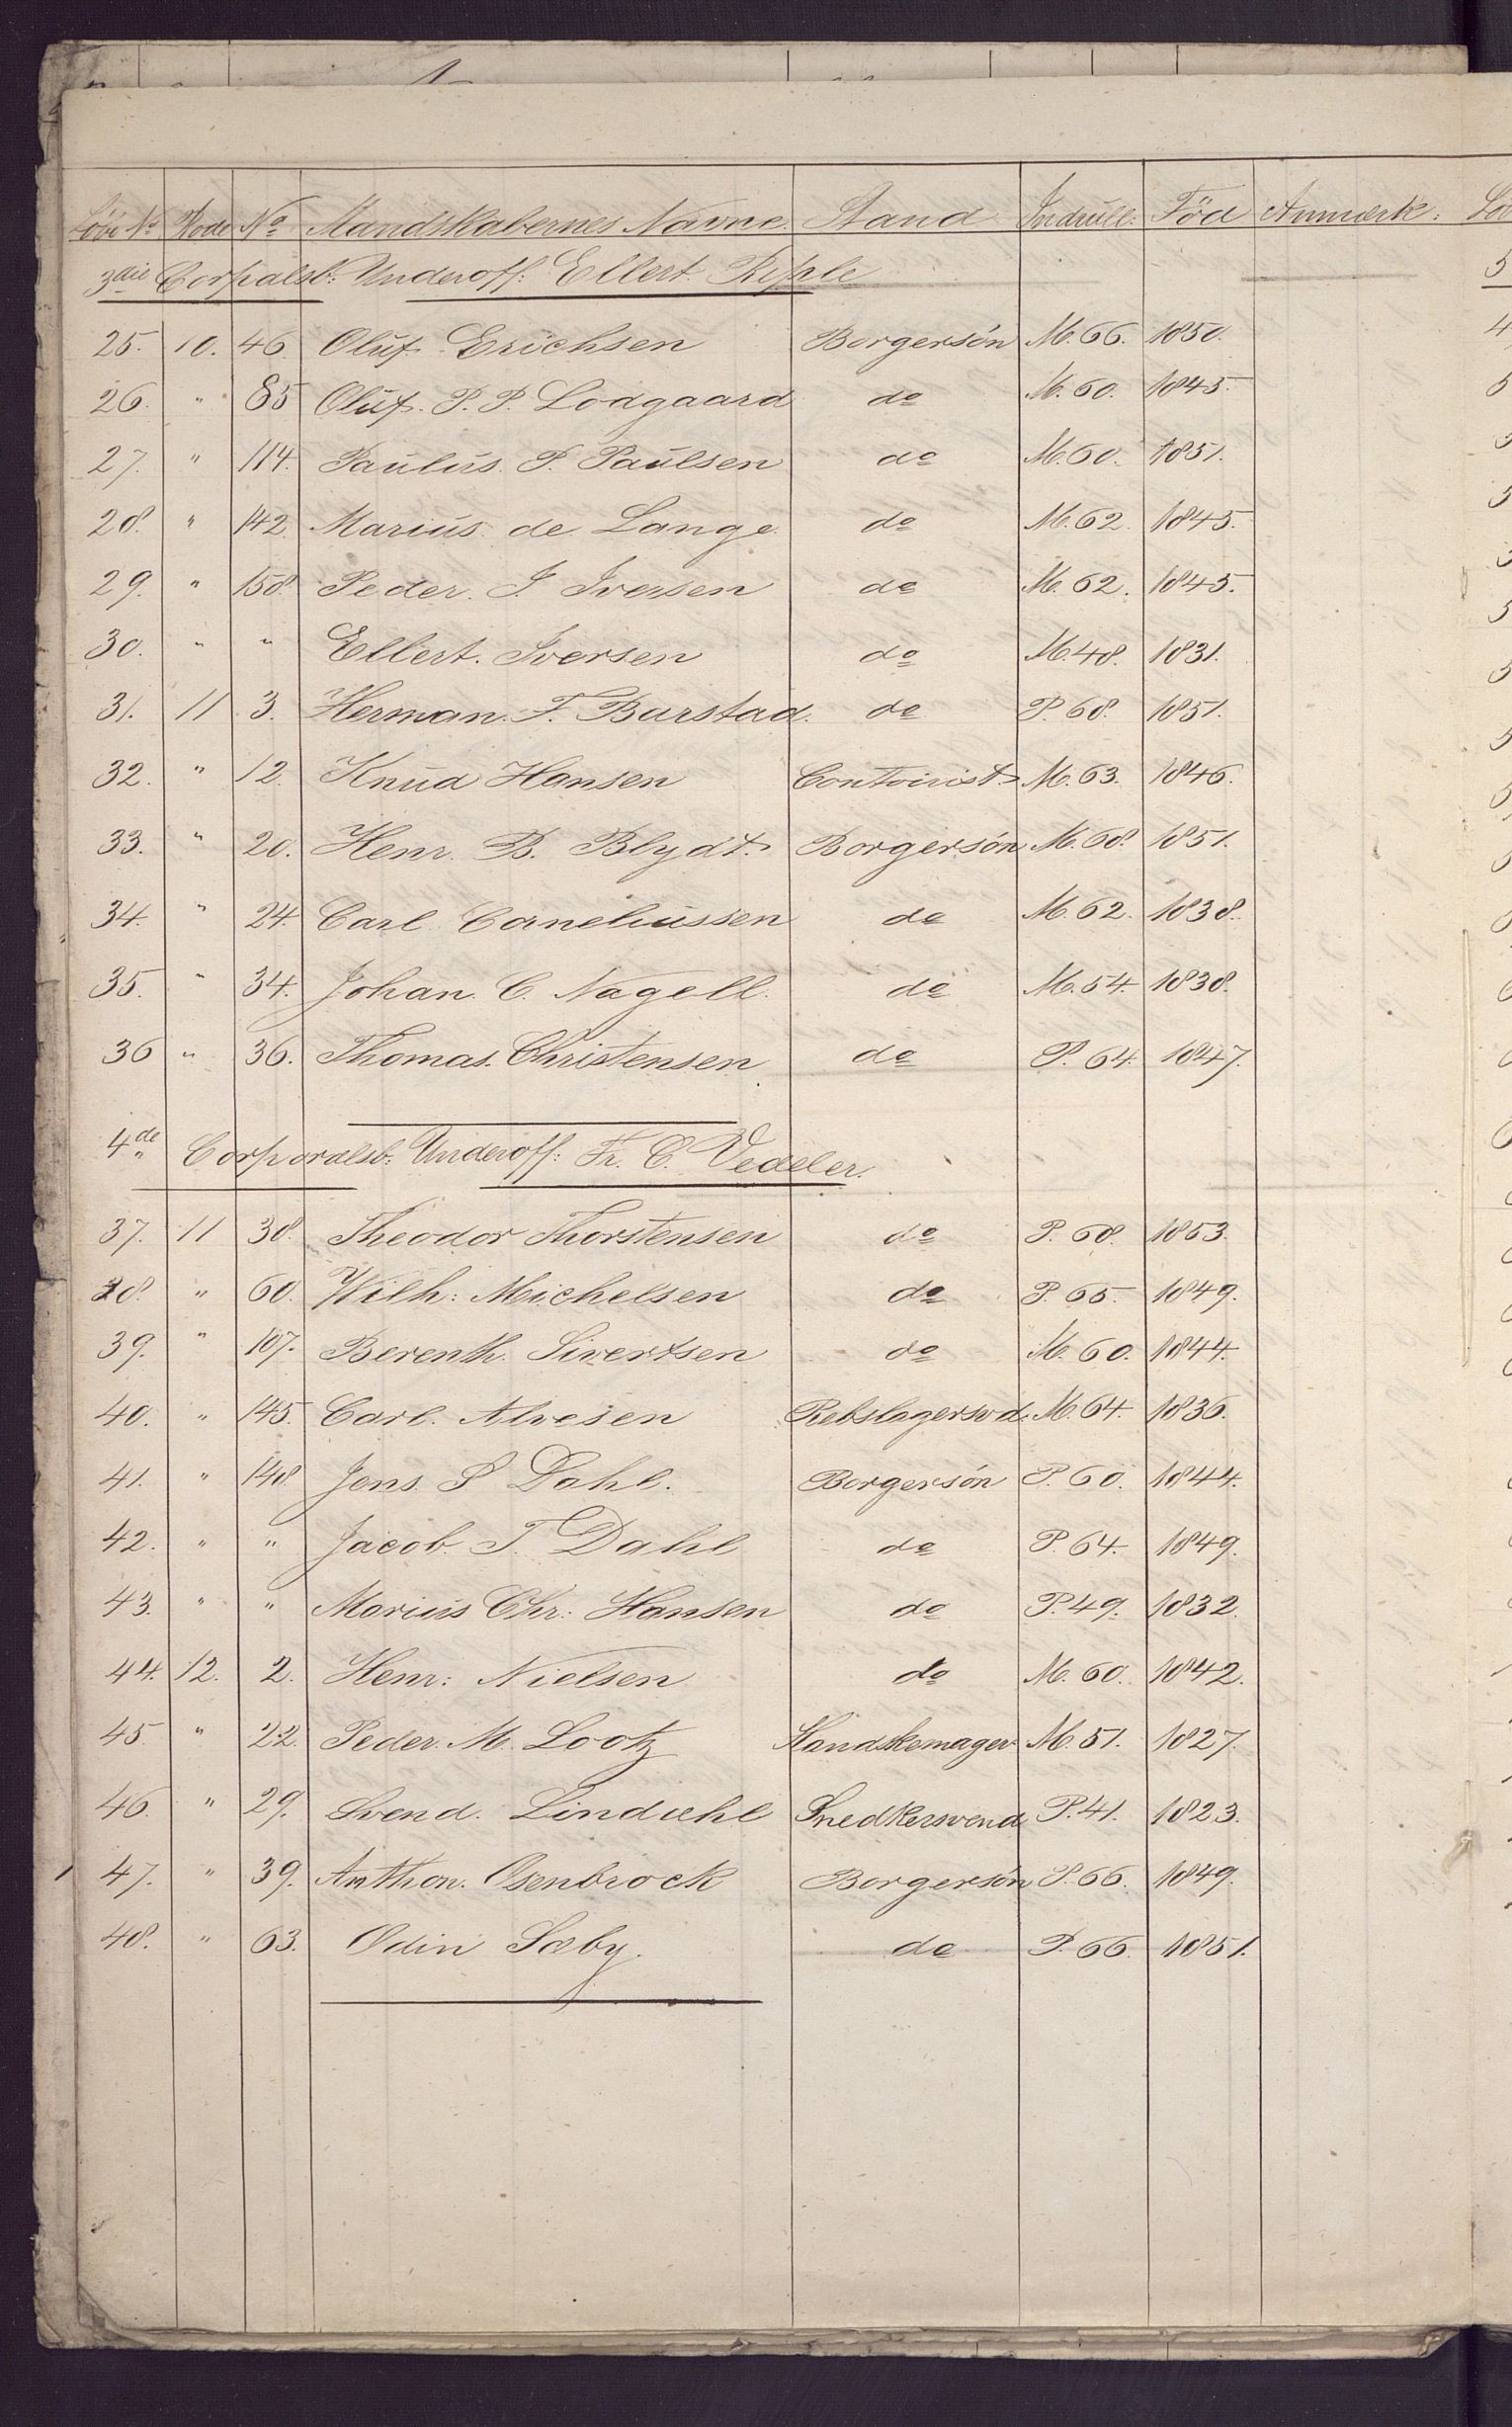 Löbe No Rode No Mandskabernes Navne. Stand Indrull: Föd Anmærk:
3die Corpalsb: Underoff: Ellert Riple
25. 10. 46. Oluf Erichsen Borgersön M. 66. 1850.
26. " 85 Oluf. P. P. Lodgaard do M. 60. 1845.
27. " 114. Paulus. P. Paulsen do M. 60. 1851.
28. " 142. Marius de Lange. do M. 62. 1845.
29. " 158. Peder. J. Iversen do M. 62. 1845.
30. " " Ellert. Iversen do M. 48. 1831.
31. 11 3. Herman. F. Barstad. do P. 68. 1851.
32. " 12. Knud Hansen Contoirist. M. 63. 1846.
33. " 20. Henr. B. Blydt. Borgersön M. 68. 1851.
34. " 24. Carl Corneliussen do M. 62. 1838.
35. " 34. Johan. C. Nagell. do M. 54. 1838.
36 " 36. Thomas. Christensen do P. 64. 1847.
4de Corporalsb: Underoff: Fr. C. Vedeler.
37. 11 38. Theodor Thorstensen do P. 68. 1853.
38. " 60. Wilh: Michelsen do P. 65. 1849.
39. " 107. Berenth. Sivertsen do M. 60. 1844.
40. " 145. Carl. Alvesen Rebslagersvd. M. 64. 1836.
41. " 148. Jens. S Dahl. Borgersön P. 60. 1844.
42. " " Jacob. T. Dahl do P. 64. 1849.
43. " " Marius Chr: Hansen do P. 49. 1832.
44. 12. 2. Henr: Nielsen do M. 60. 1842.
45. " 22. Peder. M. Lootz Handskemager M. 51. 1827.
46. " 29. Svend. Lindæhl Snedkersvend P. 41. 1823.
47. " 39. Anthon. Osenbrock Borgersön P. 66. 1849.
48. " 63. Odin Sæby. do P. 66. 1851.